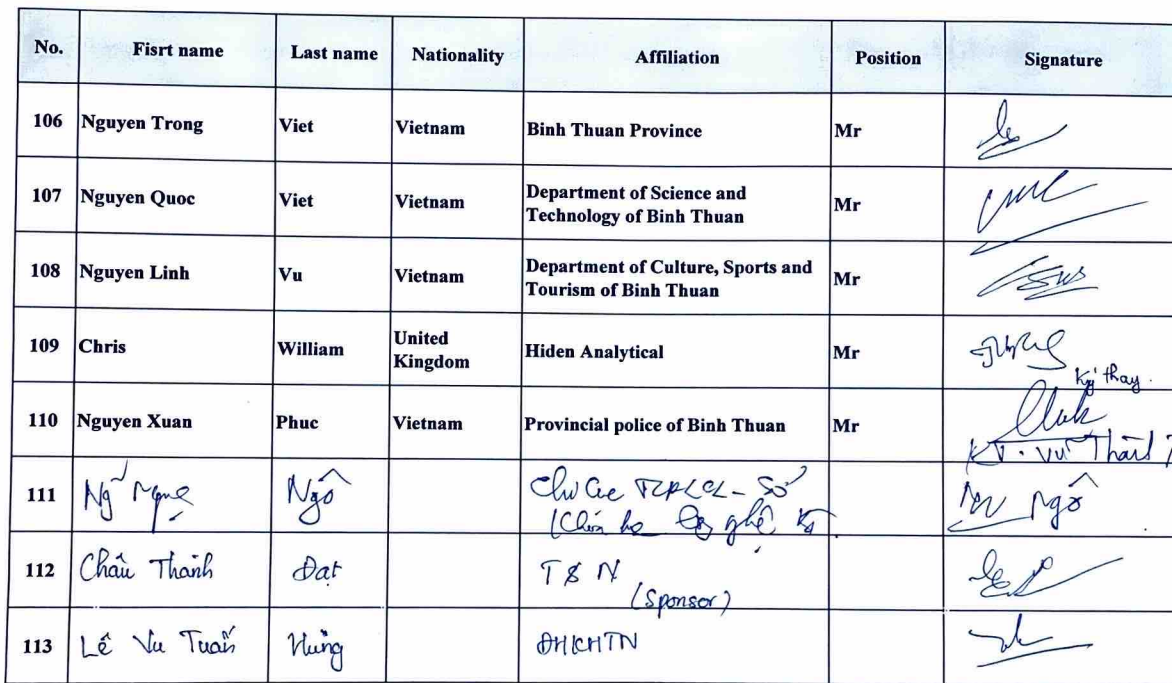 No. Fisrt name Last name Nationality Affiliation Position Signature
106 Nguyen Trong Viet Vietnam Binh Thuan Province Mr
107 Nguyen Quoc Viet Vietnam Department of Science and Technology of Binh Thuan Mr
108 Nguyen Linh Vu Vietnam Department of Culture, Sports and Tourism of Binh Thuan Mr
109 Chris William United Kingdom Hiden Analytical Mr
Ký thay.
110 Nguyen Xuan Phuc Vietnam Provincial police of Binh Thuan Mr
KT. Vũ
111 Ngô Ngô
112 Châu Thành Đạt T&N
(Sponsor)
113 Lê Vu Tuấn Hùng ĐHKHTN